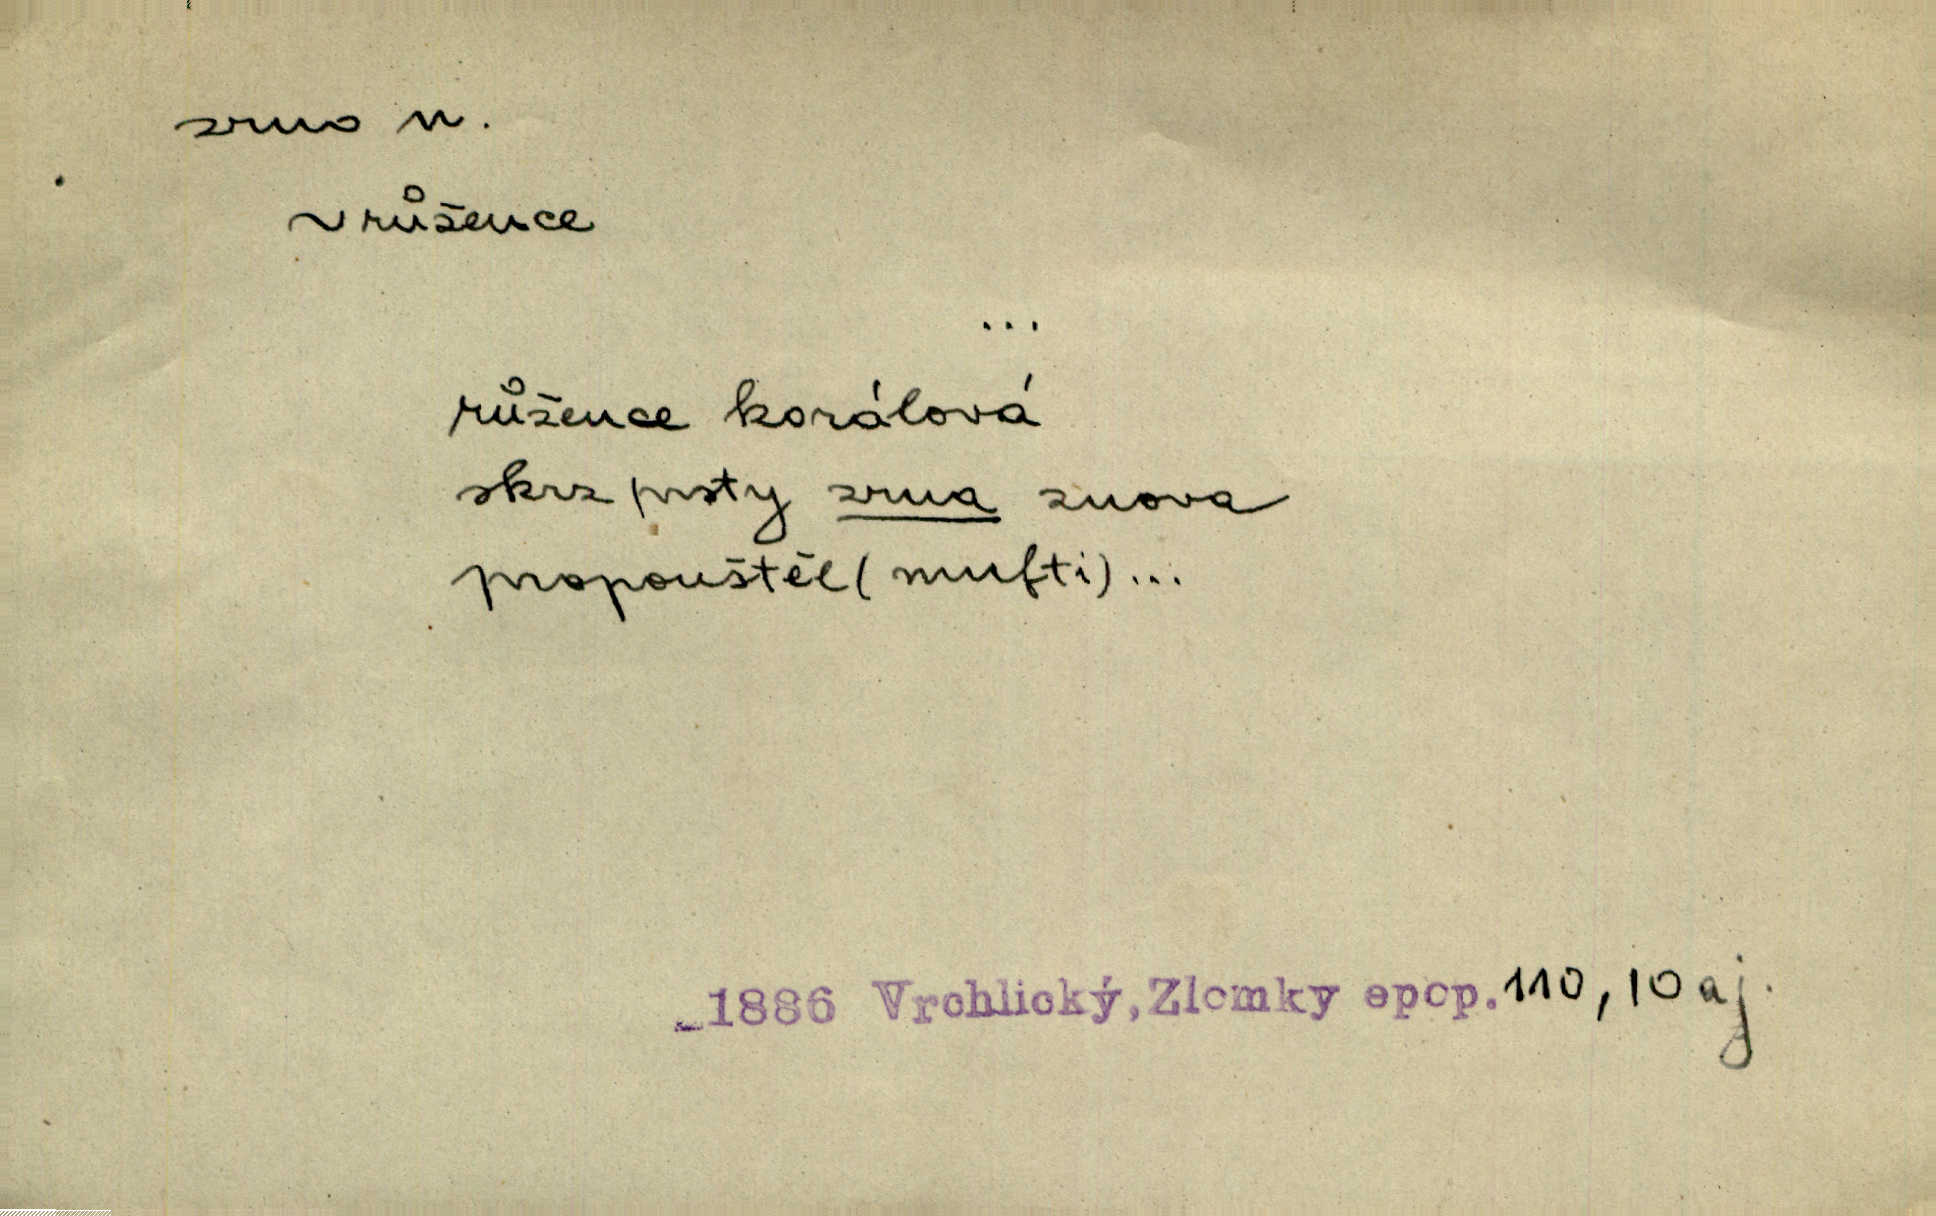 zrno n.
v růžence
...
růžence korálová
skrz prsty zrna znova
propouštěl (mufti) ...
1886 Vrchlický, Zlomky epop. 110, 10 aj.